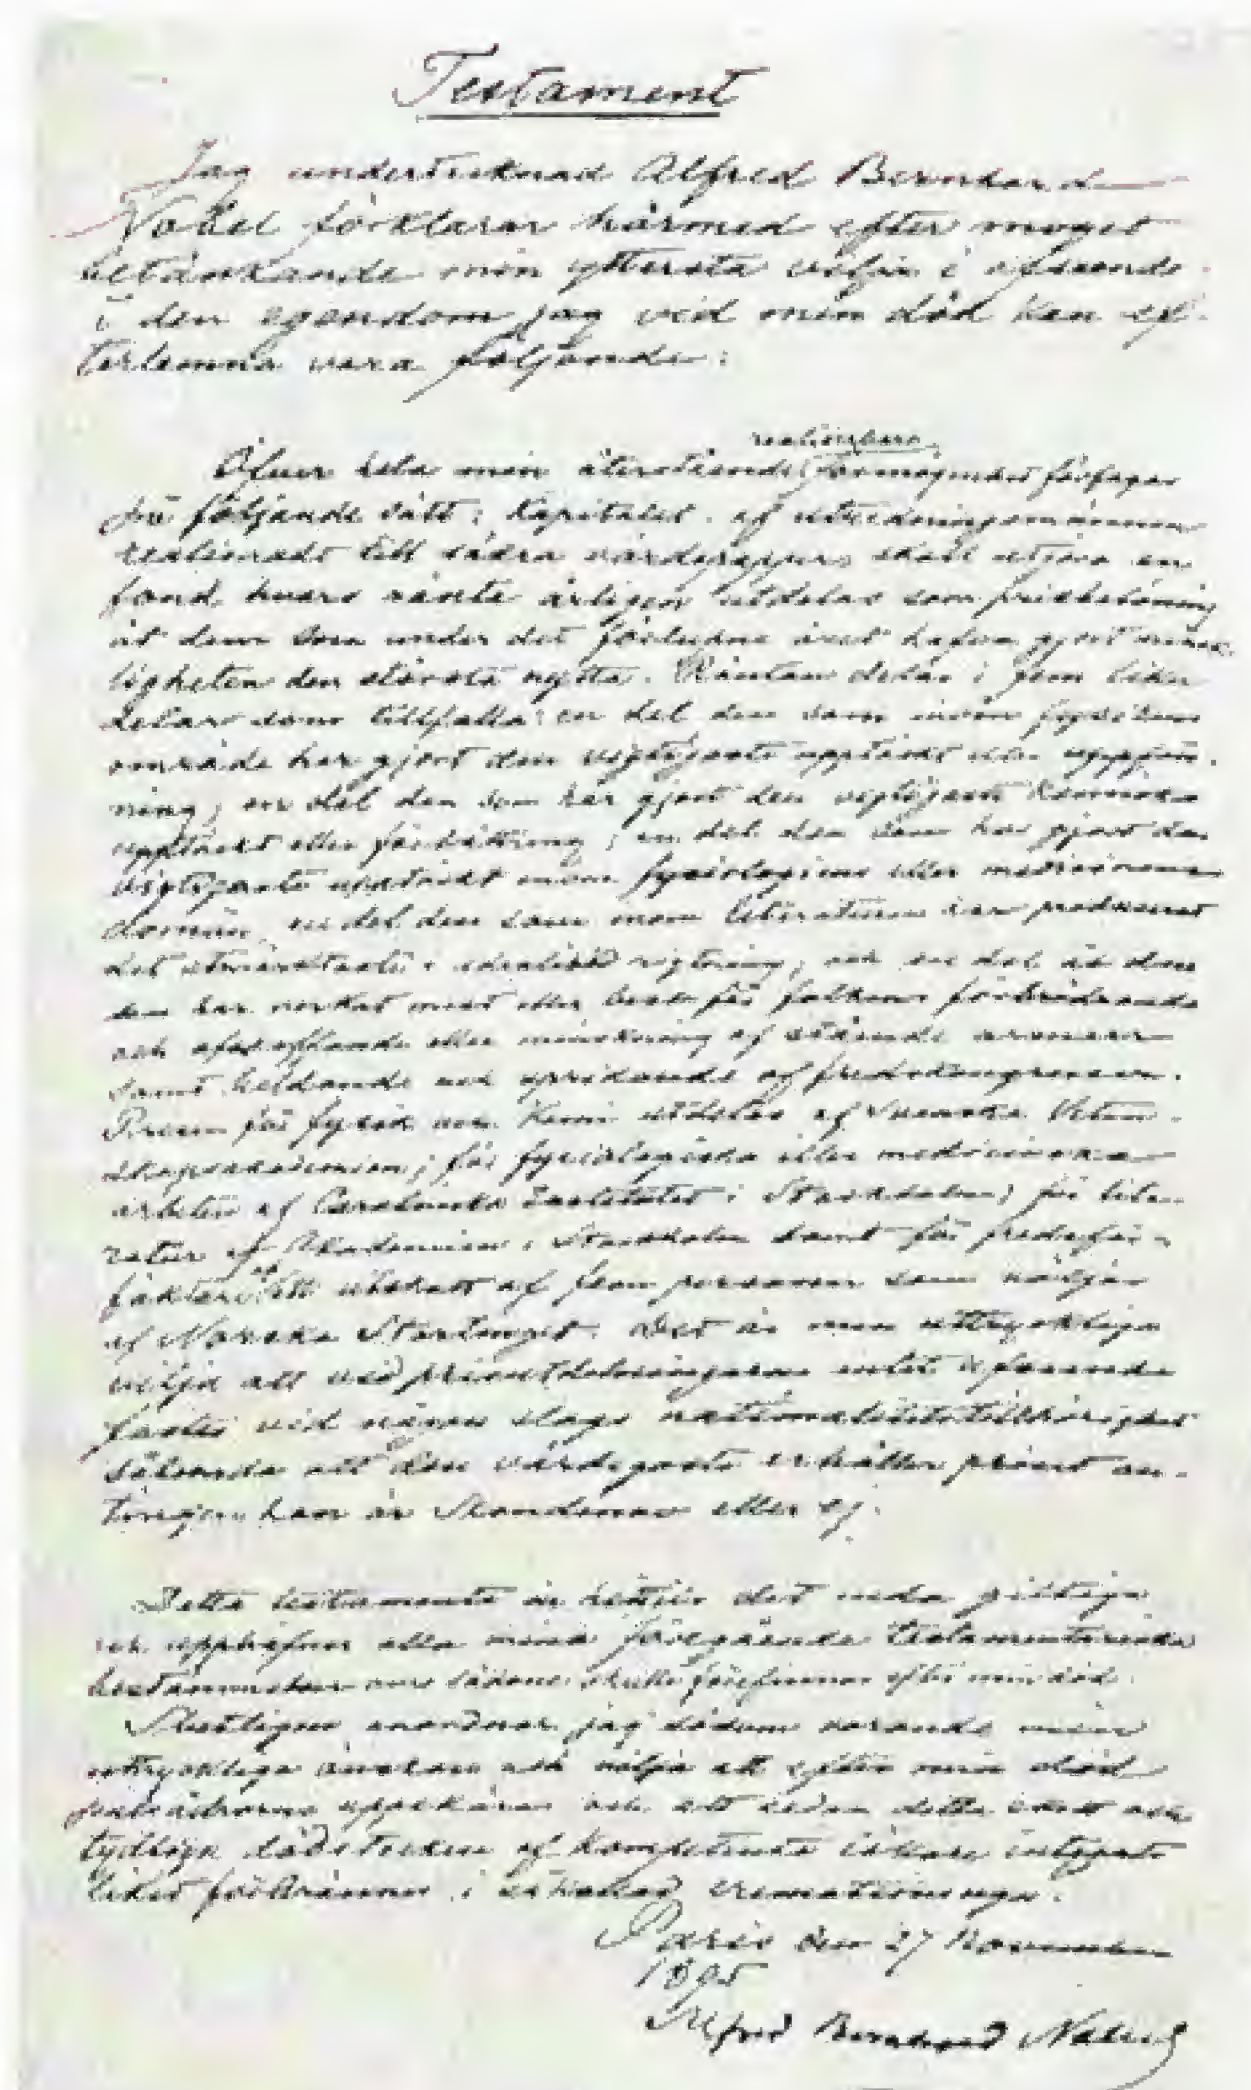 Testament
Jag undertecknad Alfred Bernhard
Nobel förklarar härmed efter moget
betänkande min yttersta vilja i afseende
å den egendom jag vid min död kan ef-
terlemna vara följande:
realiserbara
Öfver hela min återstående förmögenhet förfogas
på följande sätt: Kapitalet, af utredningsmännen
realiseradt till säkra värdepapper, skall utgöra en
fond, hvars ränta årligen utdelas som prisbelöning
åt dem som under det förlupna året hafva gjort mensk-
ligheten den största nytta. Räntan delas i fem lika
delar som tillfalla: en del den som inom fysikens
område har gjort den vigtigaste upptäckt eller uppfin-
ning; en del den som har gjort den vigtigaste kemiska
upptäckt eller förbättring; en del den som har gjort den
vigtigaste upptäckt inom fysiologiens eller medicinens
domän; en del den som inom litteraturen har producerat
det utmärktaste i idealisk rigtning; och en del åt den
som har verkat mest eller best för folkens förbrödrande
och afskaffande eller minskning af stående armeer
samt bildande och spridande af fredskongresser.
Prisen för fysik och kemi utdelas af Svenska Veten-
skapsakademien; för fysiologiska eller medicinska
arbeten af Carolinska Institutet i Stockholm; för lite-
ratur af Akademien i Stockholm samt för fredsför-
fäktare af ett utskott af fem personer som väljas
af Norska Stortinget. Det är min uttryckliga
vilja att vid prisutdelningarne intet afseende
fästes vid någon slags nationalitetstillhörighet
sålunda att den värdigaste erhåller priset an-
tingen han är Skandinav eller ej.
Detta testamente är hittills det enda giltiga
och upphäfver alla mina föregående testamentariska
bestämmelser om sådane skulle förefinnas efter min död.
Slutligen anordnar jag såsom varande min
uttryckliga önskan och vilja att efter min död
pulsådrorna uppskäras och att sedan detta skett och
tydliga dödstecken af kompetenta läkare intygats
liket förbrännes i såkallad cremationsugn.
Paris den 27 November
1895
Alfred Bernhard Nobel